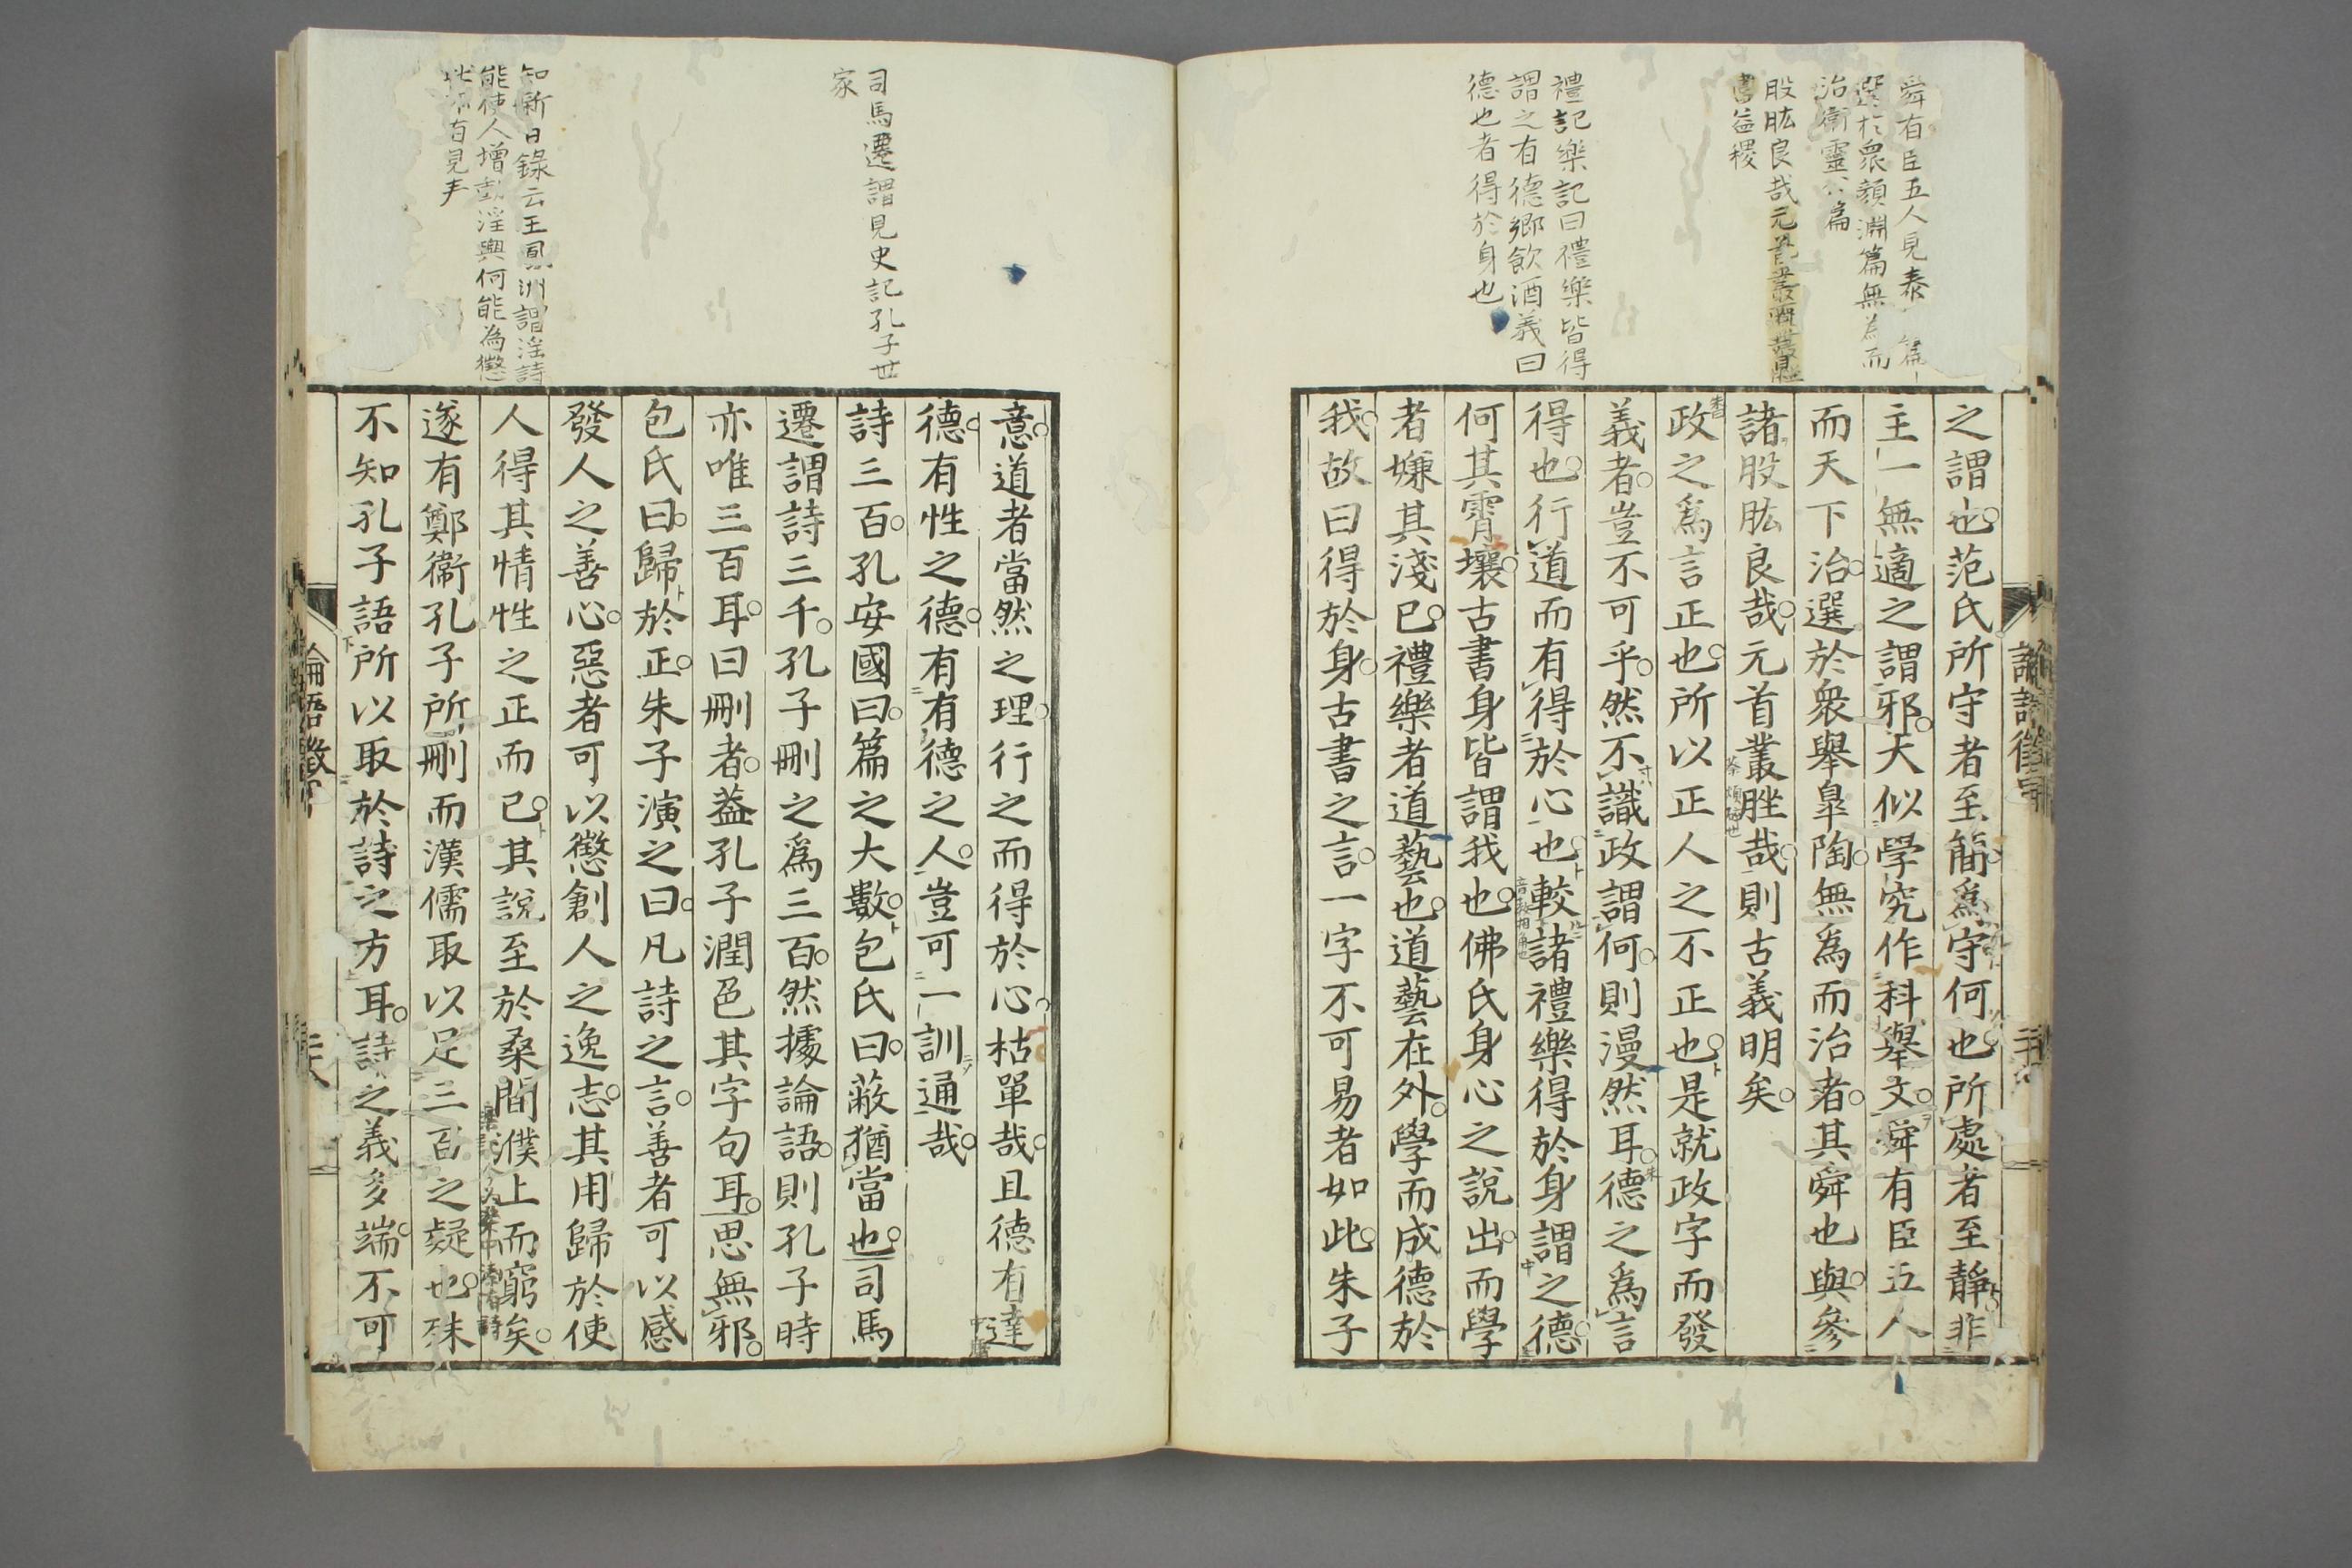 舜有臣五人見泰 篇
選於衆顔淵篇無為而
治衛靈公篇
股肱良哉元首叢脞哉見
書益稷
禮記樂記曰禮樂皆得
謂之有德鄉飲酒義曰
德也者得於身也
之謂也范氏所守者至簡爲守何也所處者至靜非
主一無適之謂邪大似學究作科舉文舜有臣五人
而天下治選於衆舉皐陶無爲而治者其舜也與參
諸股肱良哉元首叢脞哉則古義明矣
政之爲言正也所以正人之不正也是就政字而發
義者豈不可乎然不識政謂何則漫然耳德之爲言
得也行道而有得於心也較諸禮樂得於身謂之德
何其霄壤古書身皆謂我也佛氏身心之說出而學
者嫌其淺已禮樂者道藝也道藝在外學而成德於
我故曰得於身古書之言一字不可易者如此朱子
司馬遷謂見史記孔子世
家
知新日錄云王鳳洲謂淫詩
能使人增動淫興何能為懲
此亦有見
意道者當然之理行之而得於心枯單哉且德有達
德有性之德有有德之人豈可一訓通哉
詩三百孔安國曰篇之大數包氏曰蔽猶當也司馬
遷謂詩三千孔子刪之爲三百然據論語則孔子時
亦唯三百耳曰刪者葢孔子潤色其字句耳思無邪
包氏曰歸於正朱子演之曰凡詩之言善者可以感
發人之善心惡者可以懲創人之逸志其用歸於使
人得其情性之正而已其說至於桑間濮上而窮矣
遂有鄭衞孔子所刪而漢儒取以足三百之疑也殊
不知孔子語所以取於詩之方耳詩之義多端不可
論語徵